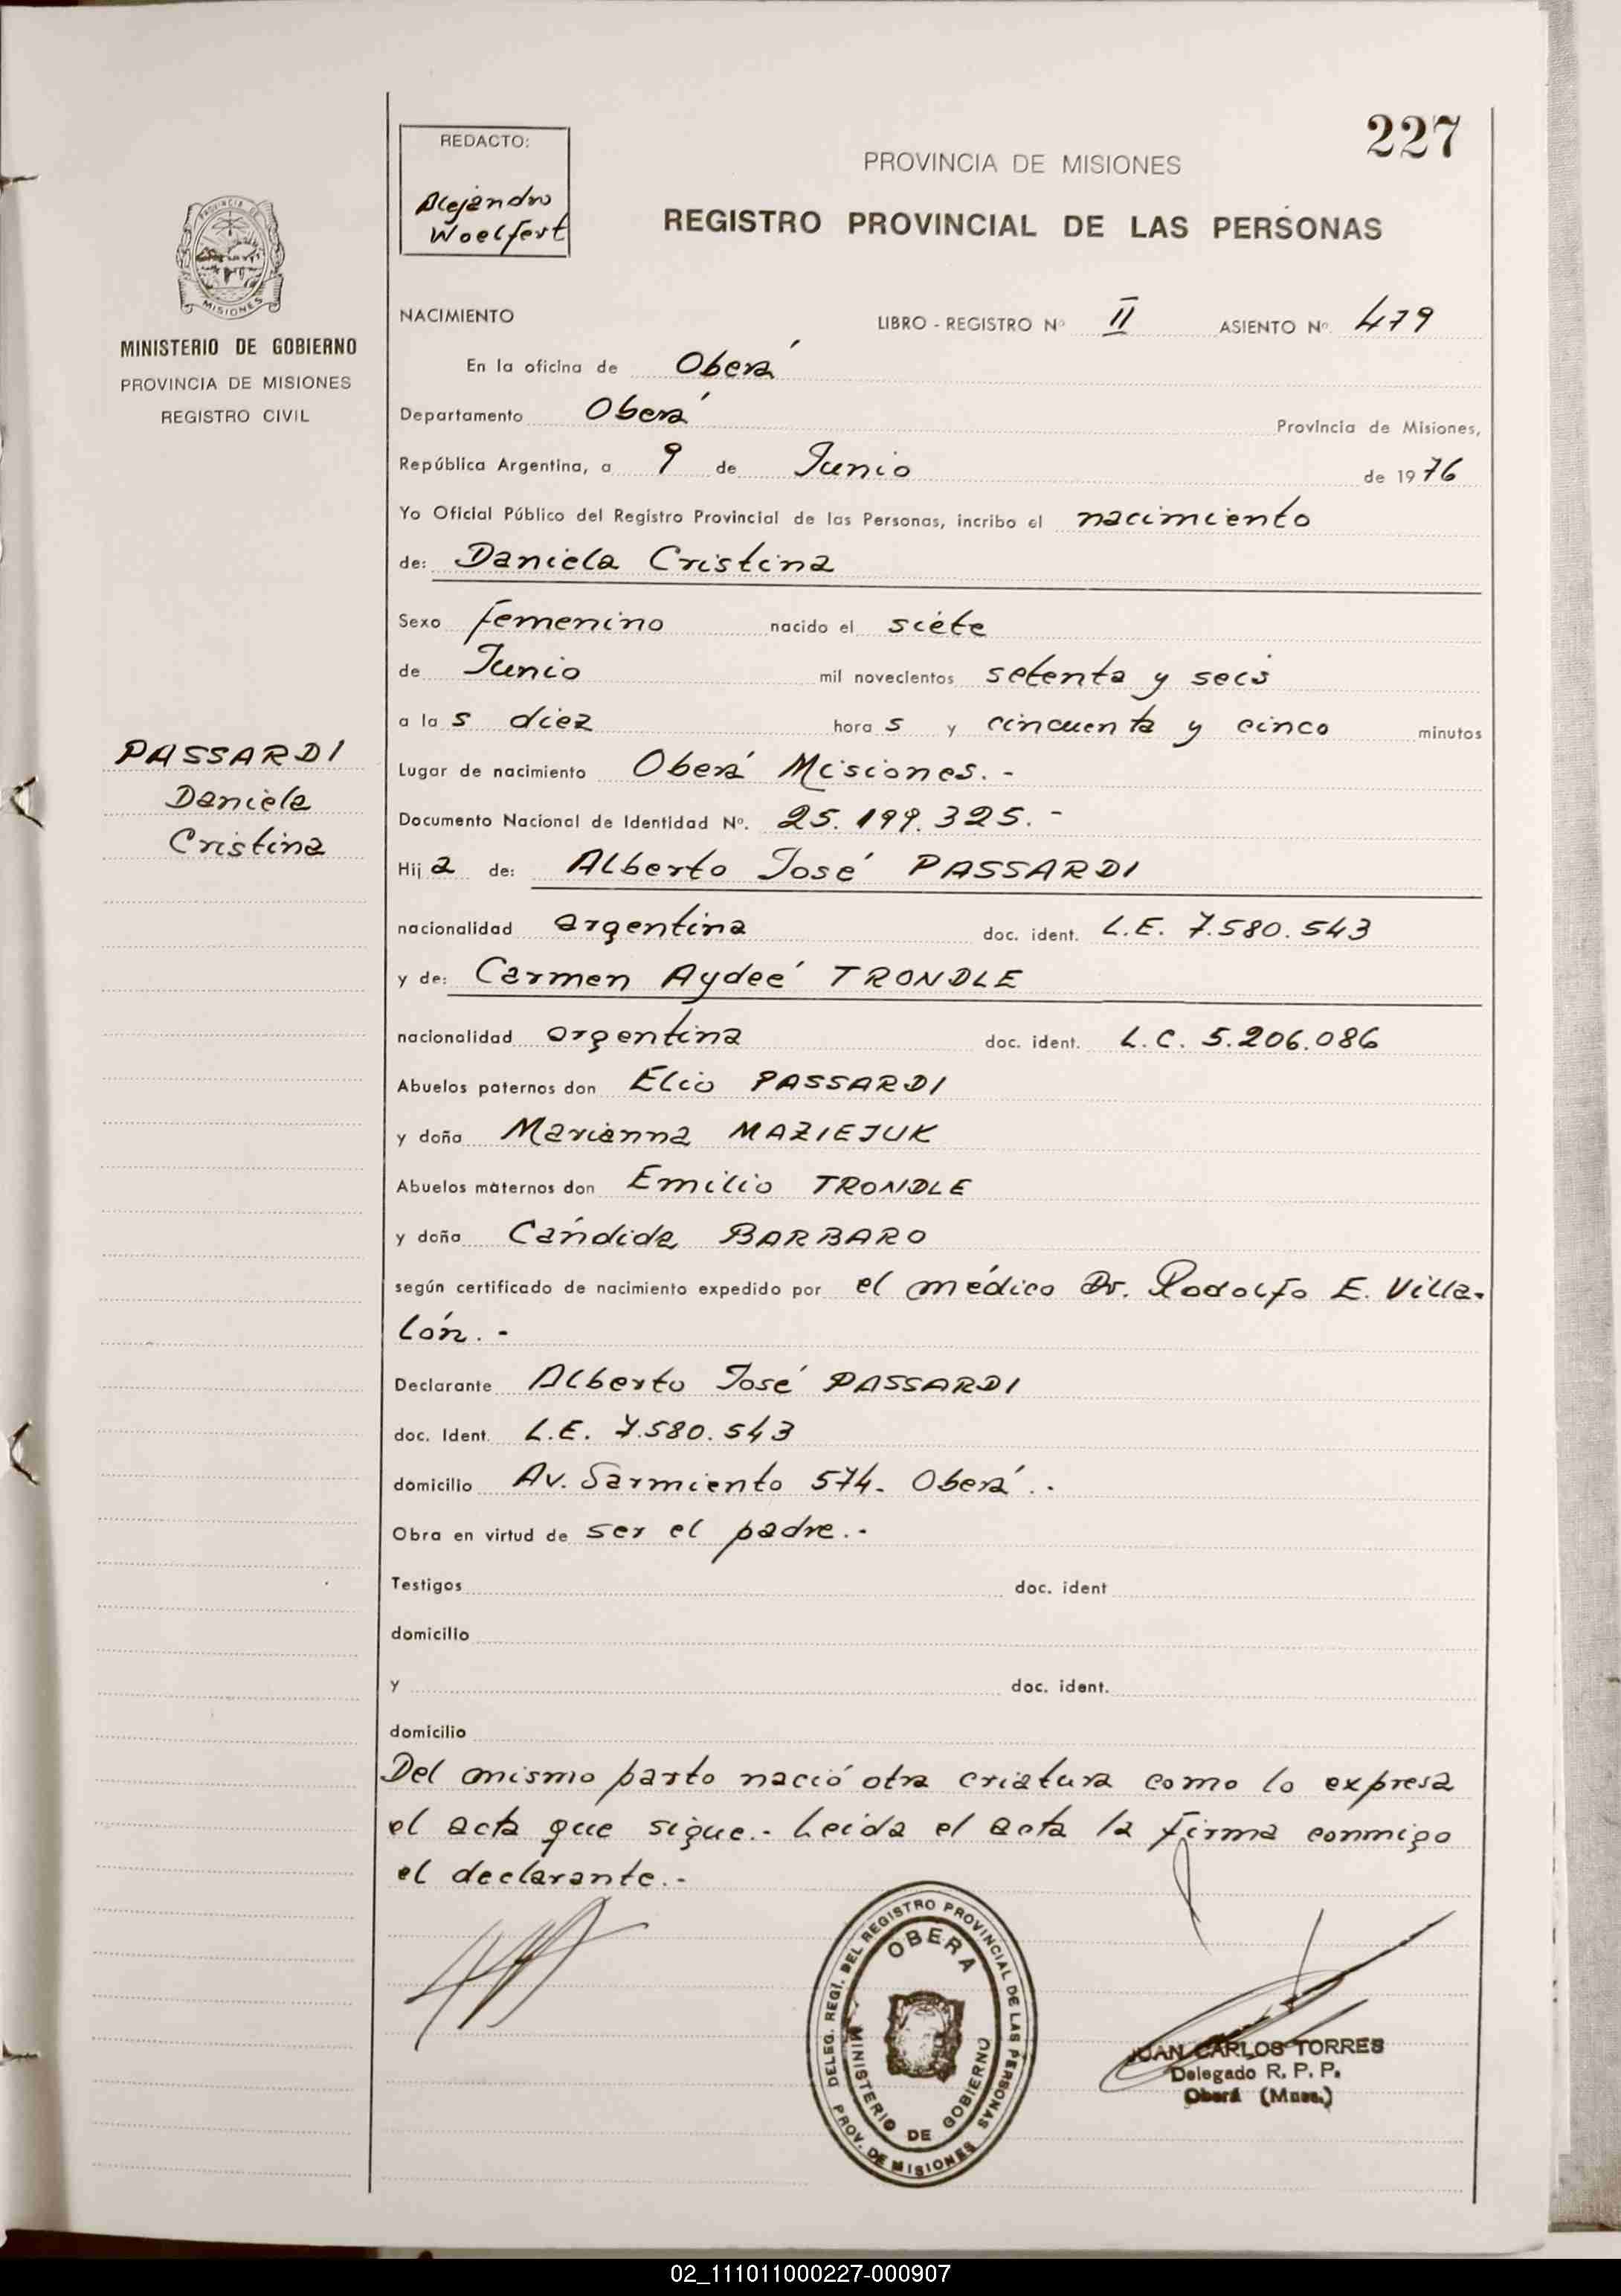 227
REDACTO:
Alejandro
Woelfert
PROVINCIA DE MISIONES
REGISTRO PROVINCIAL DE LAS PERSONAS
PROVINCIA DE
MISIONES
MINISTERIO DE GOBIERNO
PROVINCIA DE MISIONES
REGISTRO CIVIL
PASSARDI
Daniela
Cristina
NACIMIENTO LIBRO - REGISTRO Nº II ASIENTO Nº. 479
En la oficina de Oberá
Departamento Oberá Provincia de Misiones,
República Argentina, a 9 de Junio de 1976
Yo Oficial Público del Registro Provincial de las Personas, incribo el nacimiento
de: Daniela Cristina
Sexo femenino nacido el siete
de Junio mil novecientos setenta y seis
a las diez horas y cincuenta y cinco minutos
Lugar de nacimiento Oberá Misiones.-
Documento Nacional de Identidad Nº. 25.199.325.-
Hija de: Alberto José PASSARDI
nacionalidad argentina doc. ident. L.E. 7.580.543
y de: Carmen Aydeé TRONDLE
nacionalidad argentina doc. ident. L.C. 5.206.086
Abuelos paternos don Elio PASSARDI
y doña Marianna MAZIEJUK
Abuelos maternos don Emilio TRONDLE
y doña Cándida BARBARO
según certificado de nacimiento expedido por el médico Dr. Rodolfo E. Villa-
lón.-
Declarante Alberto José PASSARDI
doc. Ident. L.E. 7.580.543
domicilio Av. Sarmiento 574. Oberá.-
Obra en virtud de ser el padre.-
Testigos doc. ident
domicilio
y doc. ident.
domicilio
Del mismo parto nació otra criatura como lo expresa
el acta que sigue.- Leída el acta la firma conmigo
el declarante.-
DELEG. REGI. DEL REGISTRO PROVINCIAL DE LAS PERSONAS
PROV. DE MISIONES
OBERA
MINISTERIO DE GOBIERNO
JUAN CARLOS TORRES
Delegado R. P. P.
Oberá (Mnes.)
02_111011000227-000907